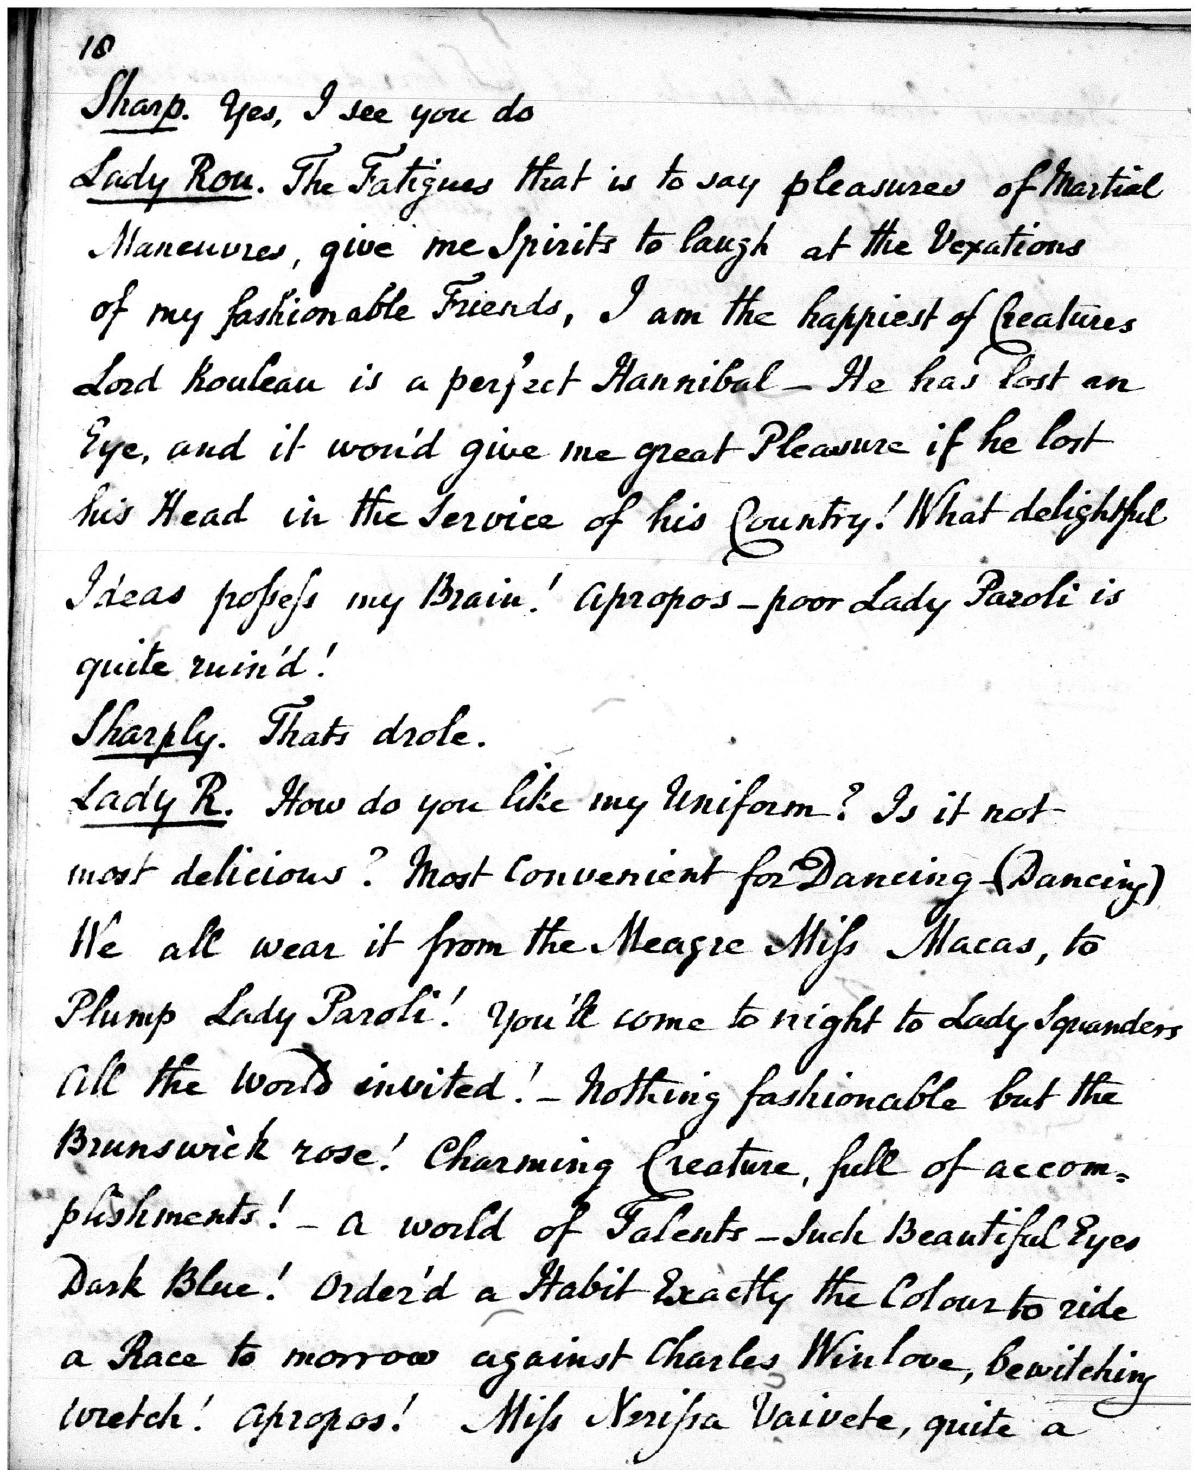 18
Sharp. Yes, I see you do
Lady Rou. The Fatigues that is to say pleasures of Martial
Maneuvres, give me Spirits to laugh at the Vexations
of my fashionable Friends, I am the happiest of Creatures
Lord Rouleau is a perfect Hannibal – He has lost an
Eye, and it wou'd give me great Pleasure if he lost
his Head in the Service of his Country! What delightful
Ideas poſseſs my Brain! Apropos – poor Lady Paroli is
quite ruin'd!
Sharply. Thats drole.
Lady R. How do you like my Uniform? Is it not
most delicious? Most Convenient for Dancing – (Dancing)
We all wear it from the Meagre Miſs Macas, to
Plump Lady Paroli! You'll come to night to Lady Squanders
All the World invited! – Nothing fashionable but the
Brunswick rose! Charming Creature, full of accom=
plishments! – A world of Talents – Such Beautiful Eyes
Dark Blue! Order'd a Habit Exactly the Colour to ride
a Race to morrow against Charles Winlove, bewitching
Wretch! Apropos! Miſs Neriſsa Vaivete, quite a